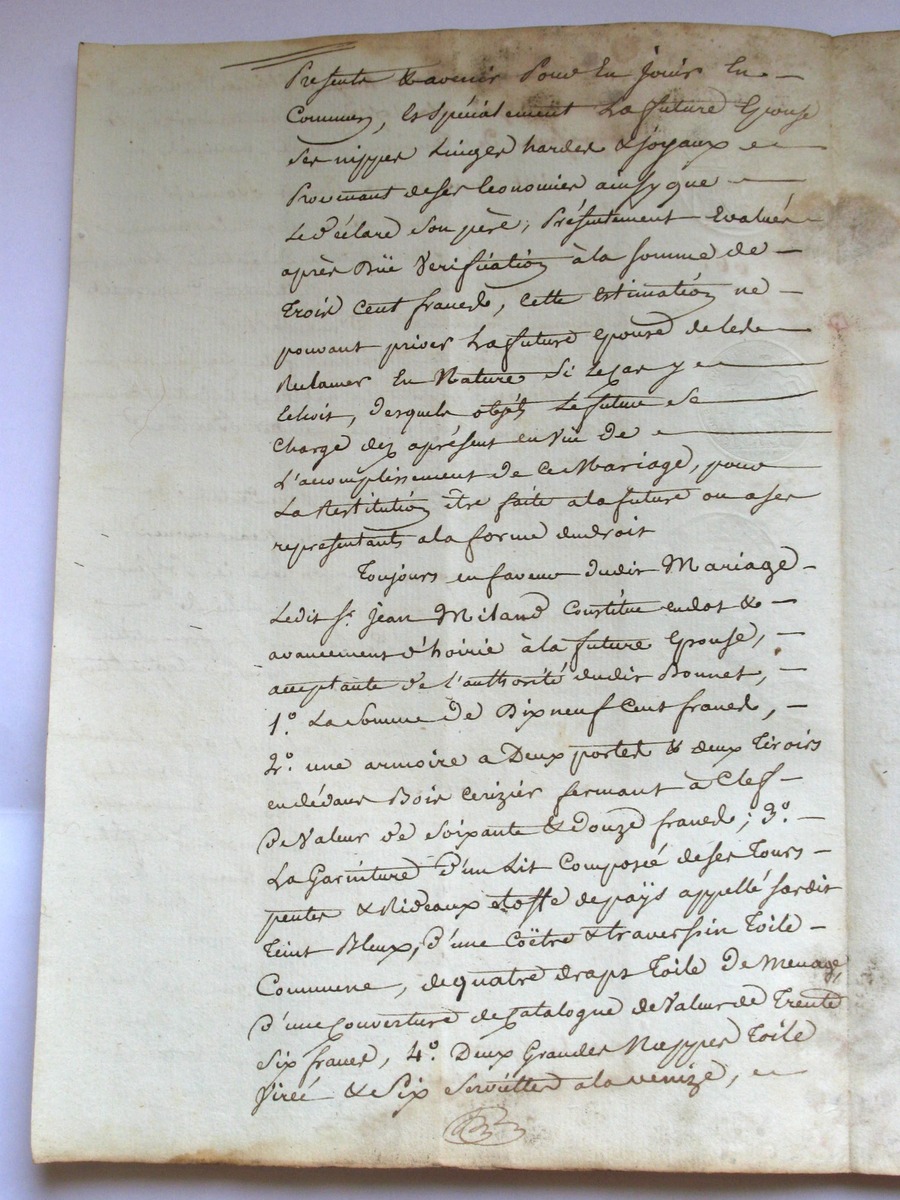 Presents & avenir Pour En Jouir En
Commun, Et spécialement La future Epouse
Ses nippes Linges hardes & joyaux
Provenant de ses Economies ainsy que
Le déclare son père, Présentement Evalués
après Düe Verification à la somme de
Trois Cent francs, Cette Estimation ne
pouvant priver La future Epouse de les
Reclamer En Nature Si le cas y
Echoit, desquels objets Le futur se
Charge dez aprésent en Vüe de
L'accomplissement de Ce Mariage, pour
La Restitution être faite a la future ou a ses
representants a la forme du droit
Toujours en faveur dudit Mariage
Ledit Sr. Jean Miland Constitue en dot &
avancement d'hoirie à la future Epouse,
acceptante de l'authorité dudit Bonnet,
1.° La Somme de Dix neuf Cent francs,
2.° une armoire a Deux portes & deux Tiroirs
en dédans Bois Cerizier fermant à Clef
De Valeur de soixante & douze francs; 3.°
La Garniture d'un Lit Composée de ses Tours
pentes & Rideaux etoffe de païs appellé sardit
Teint Bleux, d'une Coëtre & traversin Toile
Commune, de quatre draps Toile De Menage,
D'une Couverture de Catalogue de Valeur de Trente
Six francs, 4.° Deux Grandes Nappes Toile
Virée & Six Serviettes a la venize,